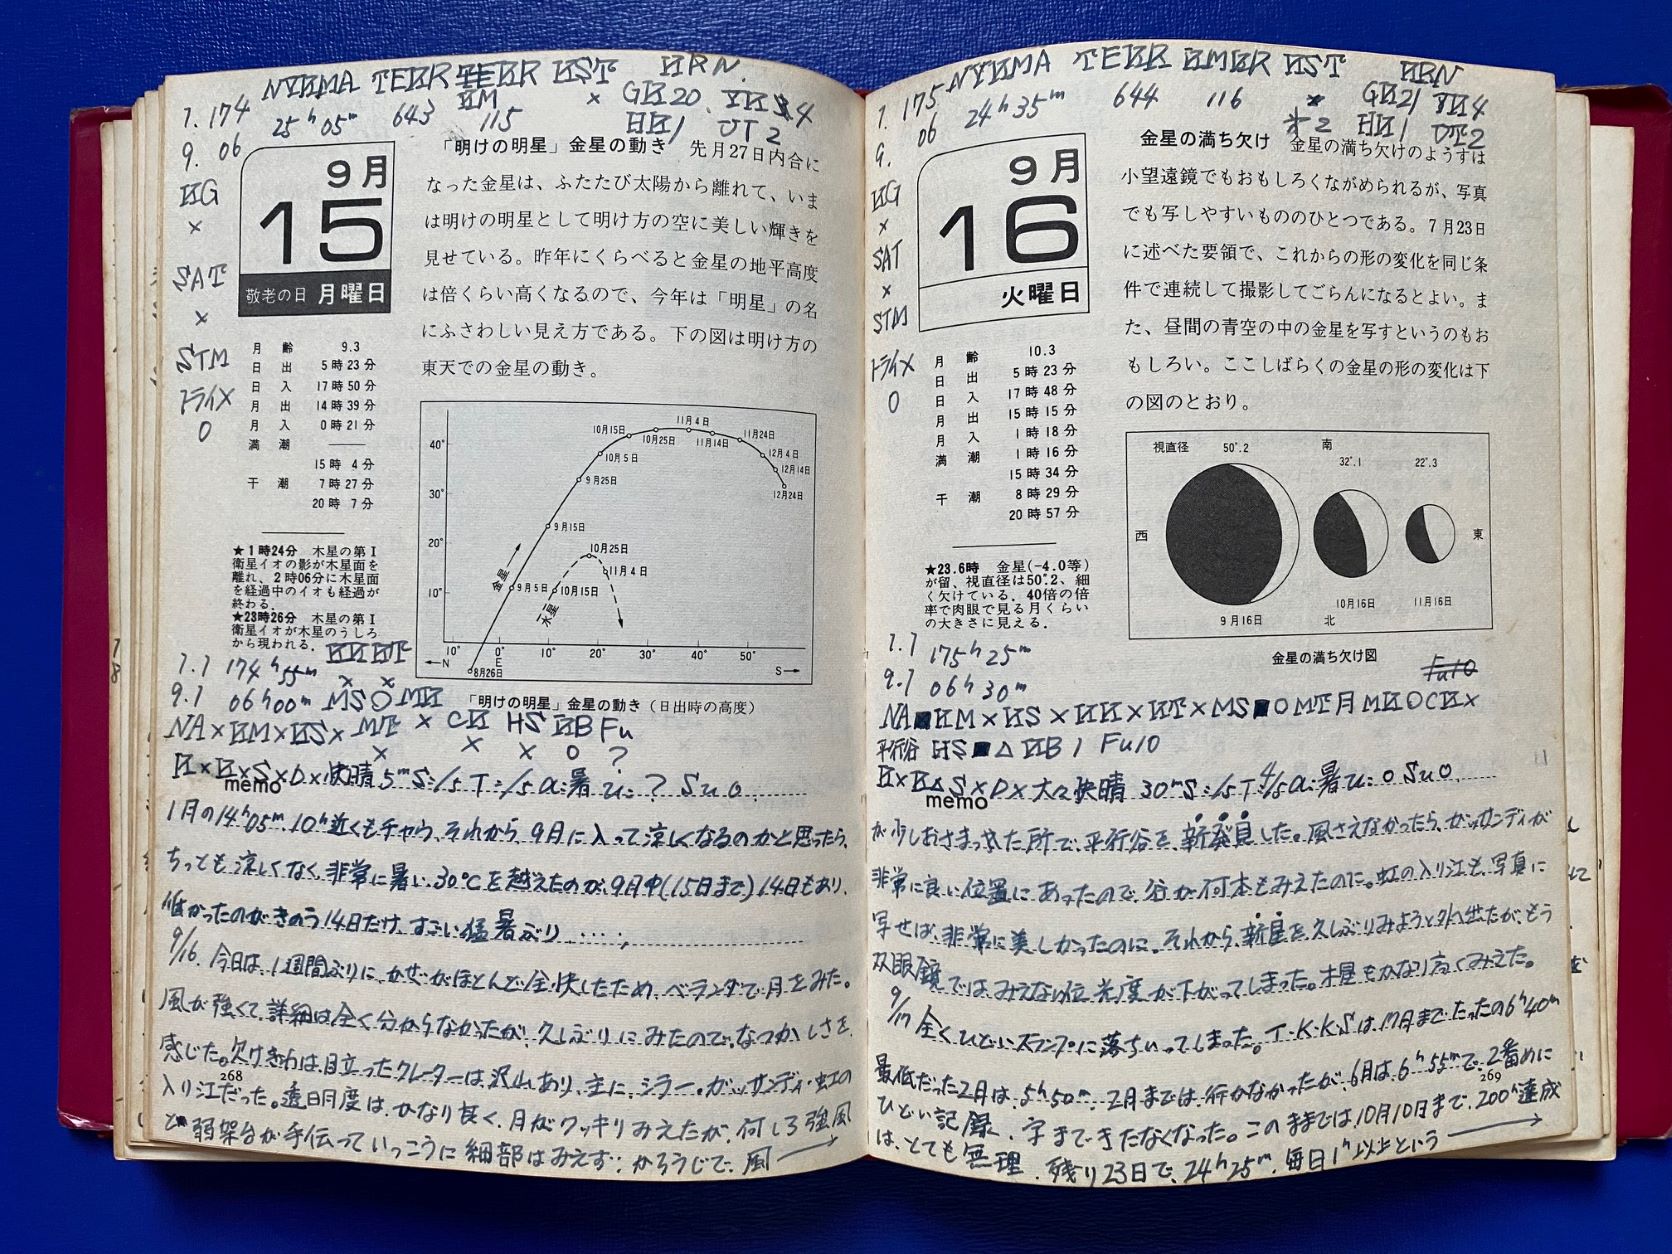 7. 174
25ʰ 05ᵐ
643
115
×
9. 06
9月
15
敬老の日 月曜日
×
SAT
×
STM
トライ×
0
月齢 9.3
日出 5時23分
日入 17時50分
月出 14時39分
月入 0時21分
満潮 ——
15時 4分
干潮 7時27分
20時 7分
★1時24分 木星の第Ⅰ
衛星イオの影が木星面を
離れ、2時06分に木星面
を経過中のイオも経過が
終わる.
★23時26分 木星の第Ⅰ
衛星イオが木星のうしろ
から現われる.
「明けの明星」金星の動き 先月27日内合に
なった金星は、ふたたび太陽から離れて、いま
は明けの明星として明け方の空に美しい輝きを
見せている。昨年にくらべると金星の地平高度
は倍くらい高くなるので、今年は「明星」の名
にふさわしい見え方である。下の図は明け方の
東天での金星の動き。
40°
30°
20°
10°
10月15日
11月4日
10月25日
11月14日
11月24日
12月4日
12月14日
12月24日
10月5日
9月25日
9月15日
金星
9月5日
10月25日
11月4日
木星
10月15日
8月26日
10° 0° 10° 20° 30° 40° 50°
←N E S→
「明けの明星」金星の動き（日出時の高度）
7.7 174ʰ55ᵐ
9.1 06ʰ00ᵐ
memo
1月の14ʰ05ᵐ、10ʰ近くもチャウ、それから、9月に入って涼しくなるのかと思ったら、
ちっとも涼しくなく、非常に暑い、30℃を越えたのが、9月中(15日まで)14日もあり、
低かったのがきのう14日だけ、すごい猛暑ぶり……,
9/16. 今日は、1週間ぶりに、かぜがほとんど全快したため、ベランダで月をみた。
風が強くて、詳細は全く分からなかったが、久しぶりにみたので、なつかしさを
感じた。欠けぎわは、目立ったクレーターは沢山あり、主に、シラー・ガッサンディ・虹の
入り江だった。透明度は、かなり良く、月がクッキリみえたが、何しろ強風
と弱架台が手伝っていっこうに細部はみえず、かろうじて、風→
268
7. 175
24ʰ35ᵐ
644
116
9. 06
9月
16
火曜日
×
SAT
×
STM
トライ×
0
月齢 10.3
日出 5時23分
日入 17時48分
月出 15時15分
月入 1時18分
満潮 1時16分
15時34分
干潮 8時29分
20時57分
★23.6時 金星(−4.0等)
が留、視直径は50″.2、細
く欠けている。40倍の倍
率で肉眼で見る月くらい
の大きさに見える．
金星の満ち欠け 金星の満ち欠けのようすは
小望遠鏡でもおもしろくながめられるが、写真
でも写しやすいもののひとつである。7月23日
に述べた要領で、これからの形の変化を同じ条
件で連続して撮影してごらんになるとよい。ま
た、昼間の青空の中の金星を写すというのもお
もしろい。ここしばらくの金星の形の変化は下
の図のとおり。
視直径 50″.2 南 32″.1 22″.3
西 東
9月16日 北 10月16日 11月16日
金星の満ち欠け図
7.7 175ʰ25ᵐ
9.1 06ʰ30ᵐ
memo
が少しおさまった所で、平行谷を、新発見した。風さえなかったら、ガッサンディが
非常に良い位置にあったので、谷が何本もみえたのに。虹の入り江も、写真に
写せば、非常に美しかったのに。それから、新星を久しぶりみようと外へ出たが、もう
双眼鏡では、みえない位、光度が下がってしまった。木星もかなり高くみえた。
9/17 全くひどいスランプに落ちいってしまった。T・K・K・Sは17日までたったの6ʰ40ᵐ
最低だった2月は、5ʰ50ᵐ、2月までは、行かなかったが、6月は、6ʰ55ᵐで、2番めに
ひどい記録、字まできたなくなった。このままでは、10月10日まで、200ʰ達成
は、とても無理、残り23日で、24ʰ25ᵐ、毎日1ʰ以上という→
269